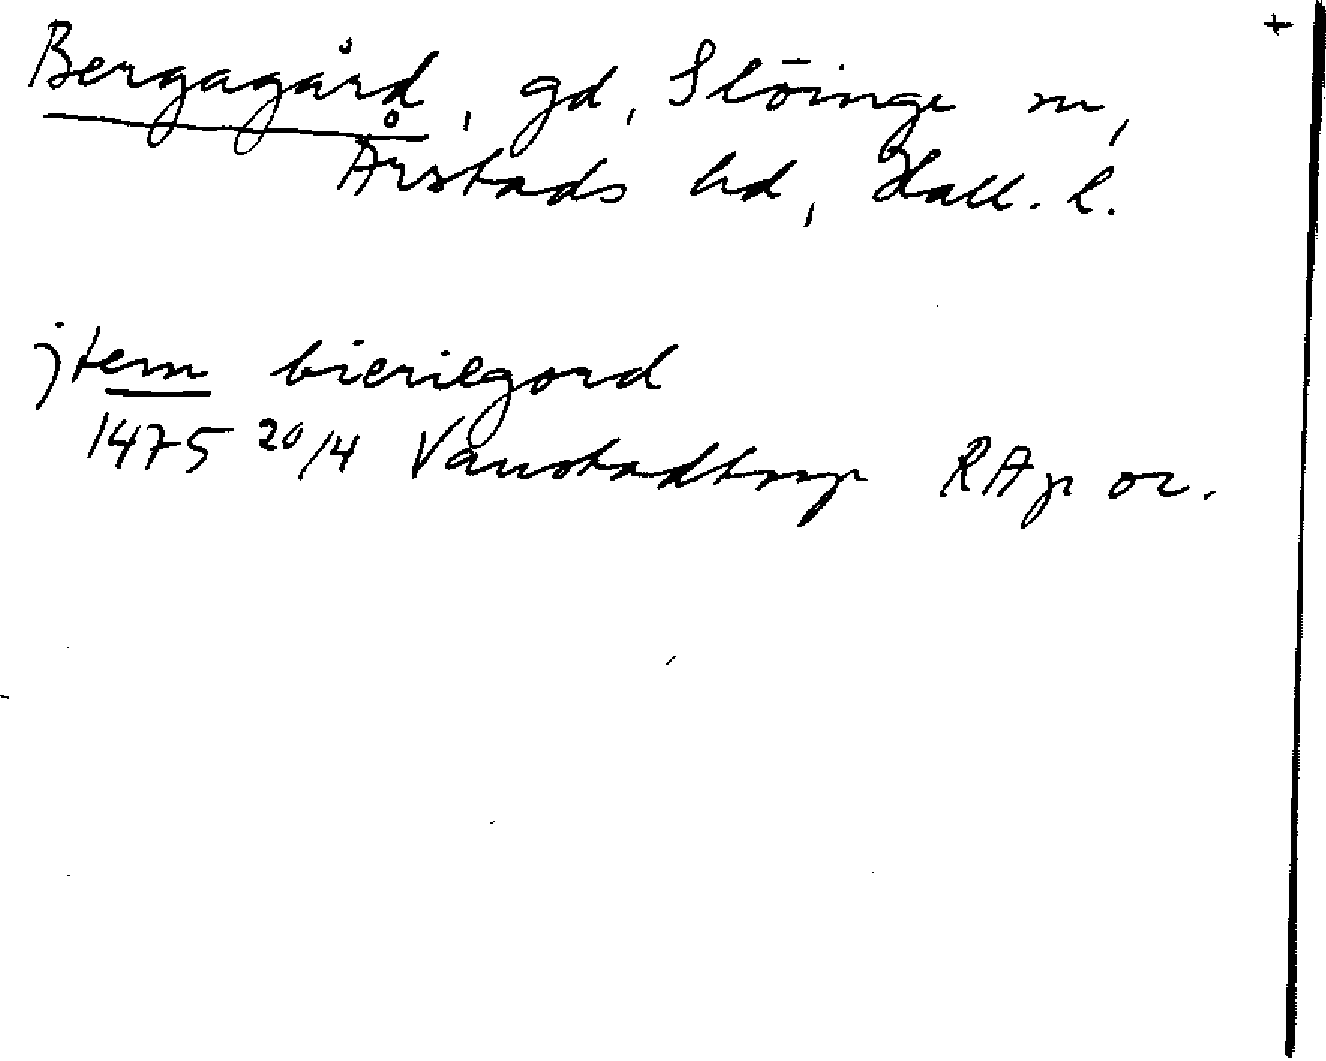 +
Bergagård, gd, Slöinge sn,
Årstads hd, Hall. l.
jtem bierilgord
1475 20/4 Vanstadtorp RAp or.